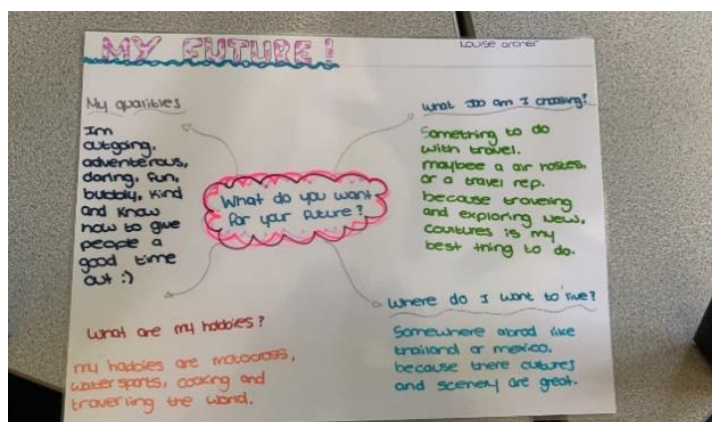 MY FUTURE!
Louise archer
My qualities
Im
outgoing,
adventerous,
daring, fun,
bubbly, kind
and know
how to give
people a
good time
out :)
What Job am I choosing?
Something to do
with travel.
maybee a air hostes,
or a travel rep.
because travering
and exploring new,
coultures is my
best thing to do.
What do you want
for your future?
What are my hobbies?
my hobbies are motocross,
watersports, cooking and
traverling the world.
Where do I want to live?
Somewhere abrod like
thailand or mexico.
because there cultures
and scenery are great.